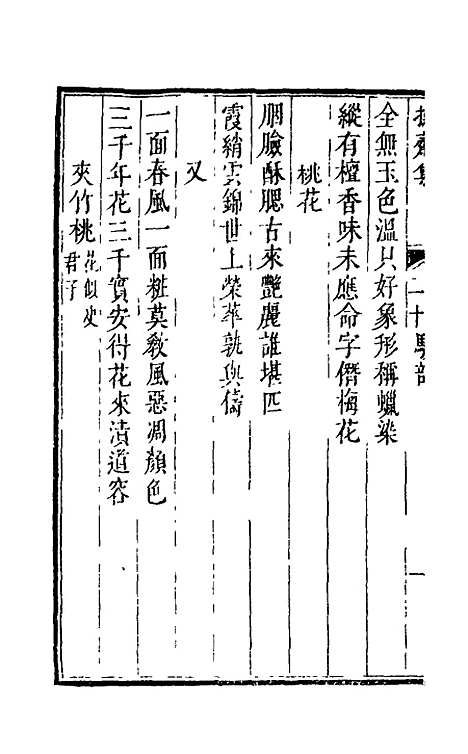 全無玉色溫只好象形稱蠟染
縱有檀香味未應命字僭梅花
桃花
胭臉酥腮古來艷麗誰堪匹
霞綃雲錦世上榮華孰與儔
又
一面春風一面粧莫敎風惡凋顏色
三千年花三千實安得花來漬道容
夾竹桃花似史君子